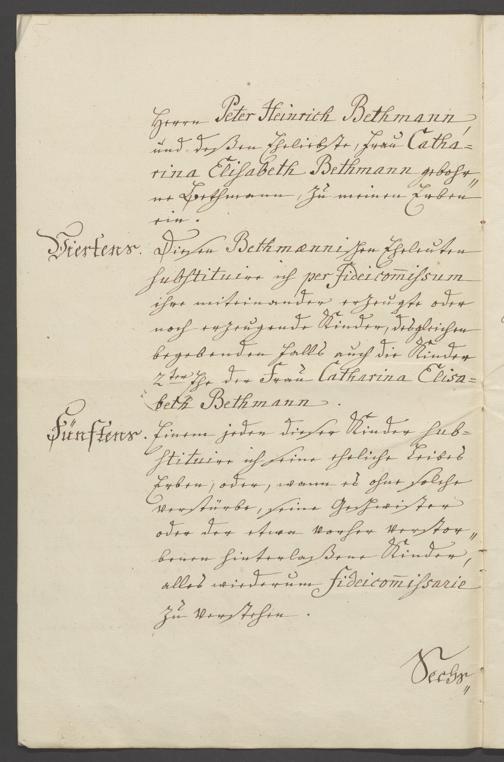 Herrn Peter Heinrich Bethmann,
und deßen Eheliebste, Frau Catha=
rina Elisabeth Bethmann gebohr„
ne Bethmann, zu meinen Erben
ein.
Viertens. Diesen Bethmännischen Eheleuten
substituire ich per fideicom̄issum
ihre miteinander erzeugte oder
noch erzeugende Kinder, desgleichen
begebenden Falls auch die Kinder
2ter Ehe der Frau Catharina Elisa=
beth Bethmann.
Fünftens. Einem jeden dieser Kinder sub=
stituire ich seine eheliche Leibes
Erben, oder, wann es ohne solche
verstürbe, seine Geschwister
oder der etwa vorher verstor„
benen hinterlaßene Kinder,
alles wiederum fideicom̄issarie
zu verstehen.
Sechs„